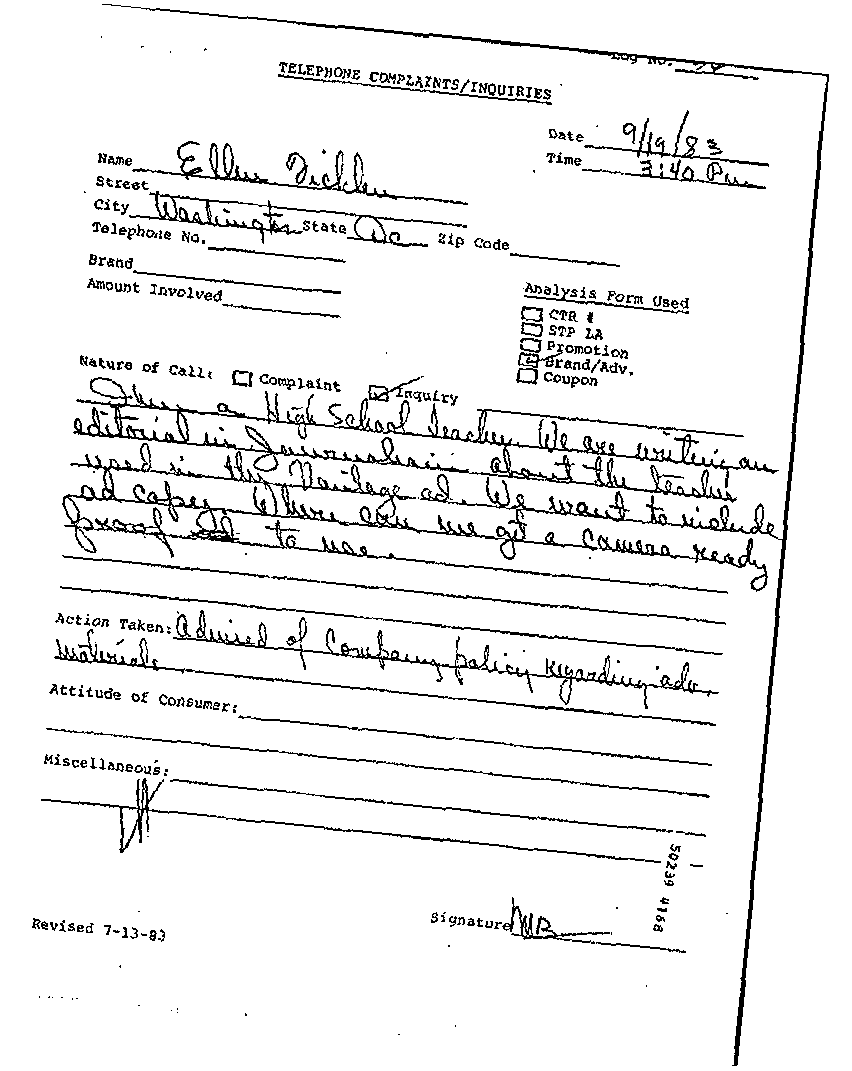 Log No. 
TELEPHONE COMPLAINTS/INQUIRIES
Date 9/19/83
Time 3:40 Pm
Name Ellen
Street
City Washington State DC Zip Code
Telephone No.
Brand
Amount Involved
Analysis Form Used
CTR #
STP LA
Promotion
Brand/Adv.
Coupon
Nature of Call: Complaint Inquiry
I'm a High School teacher. We are writing an
editorial in Journalism about the teacher
used in the Vantage ad. We want to include
ad copy. Where can we get a camera ready
proof to use.
Action Taken: Advised of Company policy regarding adv.
materials.
Attitude of Consumer:
Miscellaneous:
50239 4168
Signature MB
Revised 7-13-83